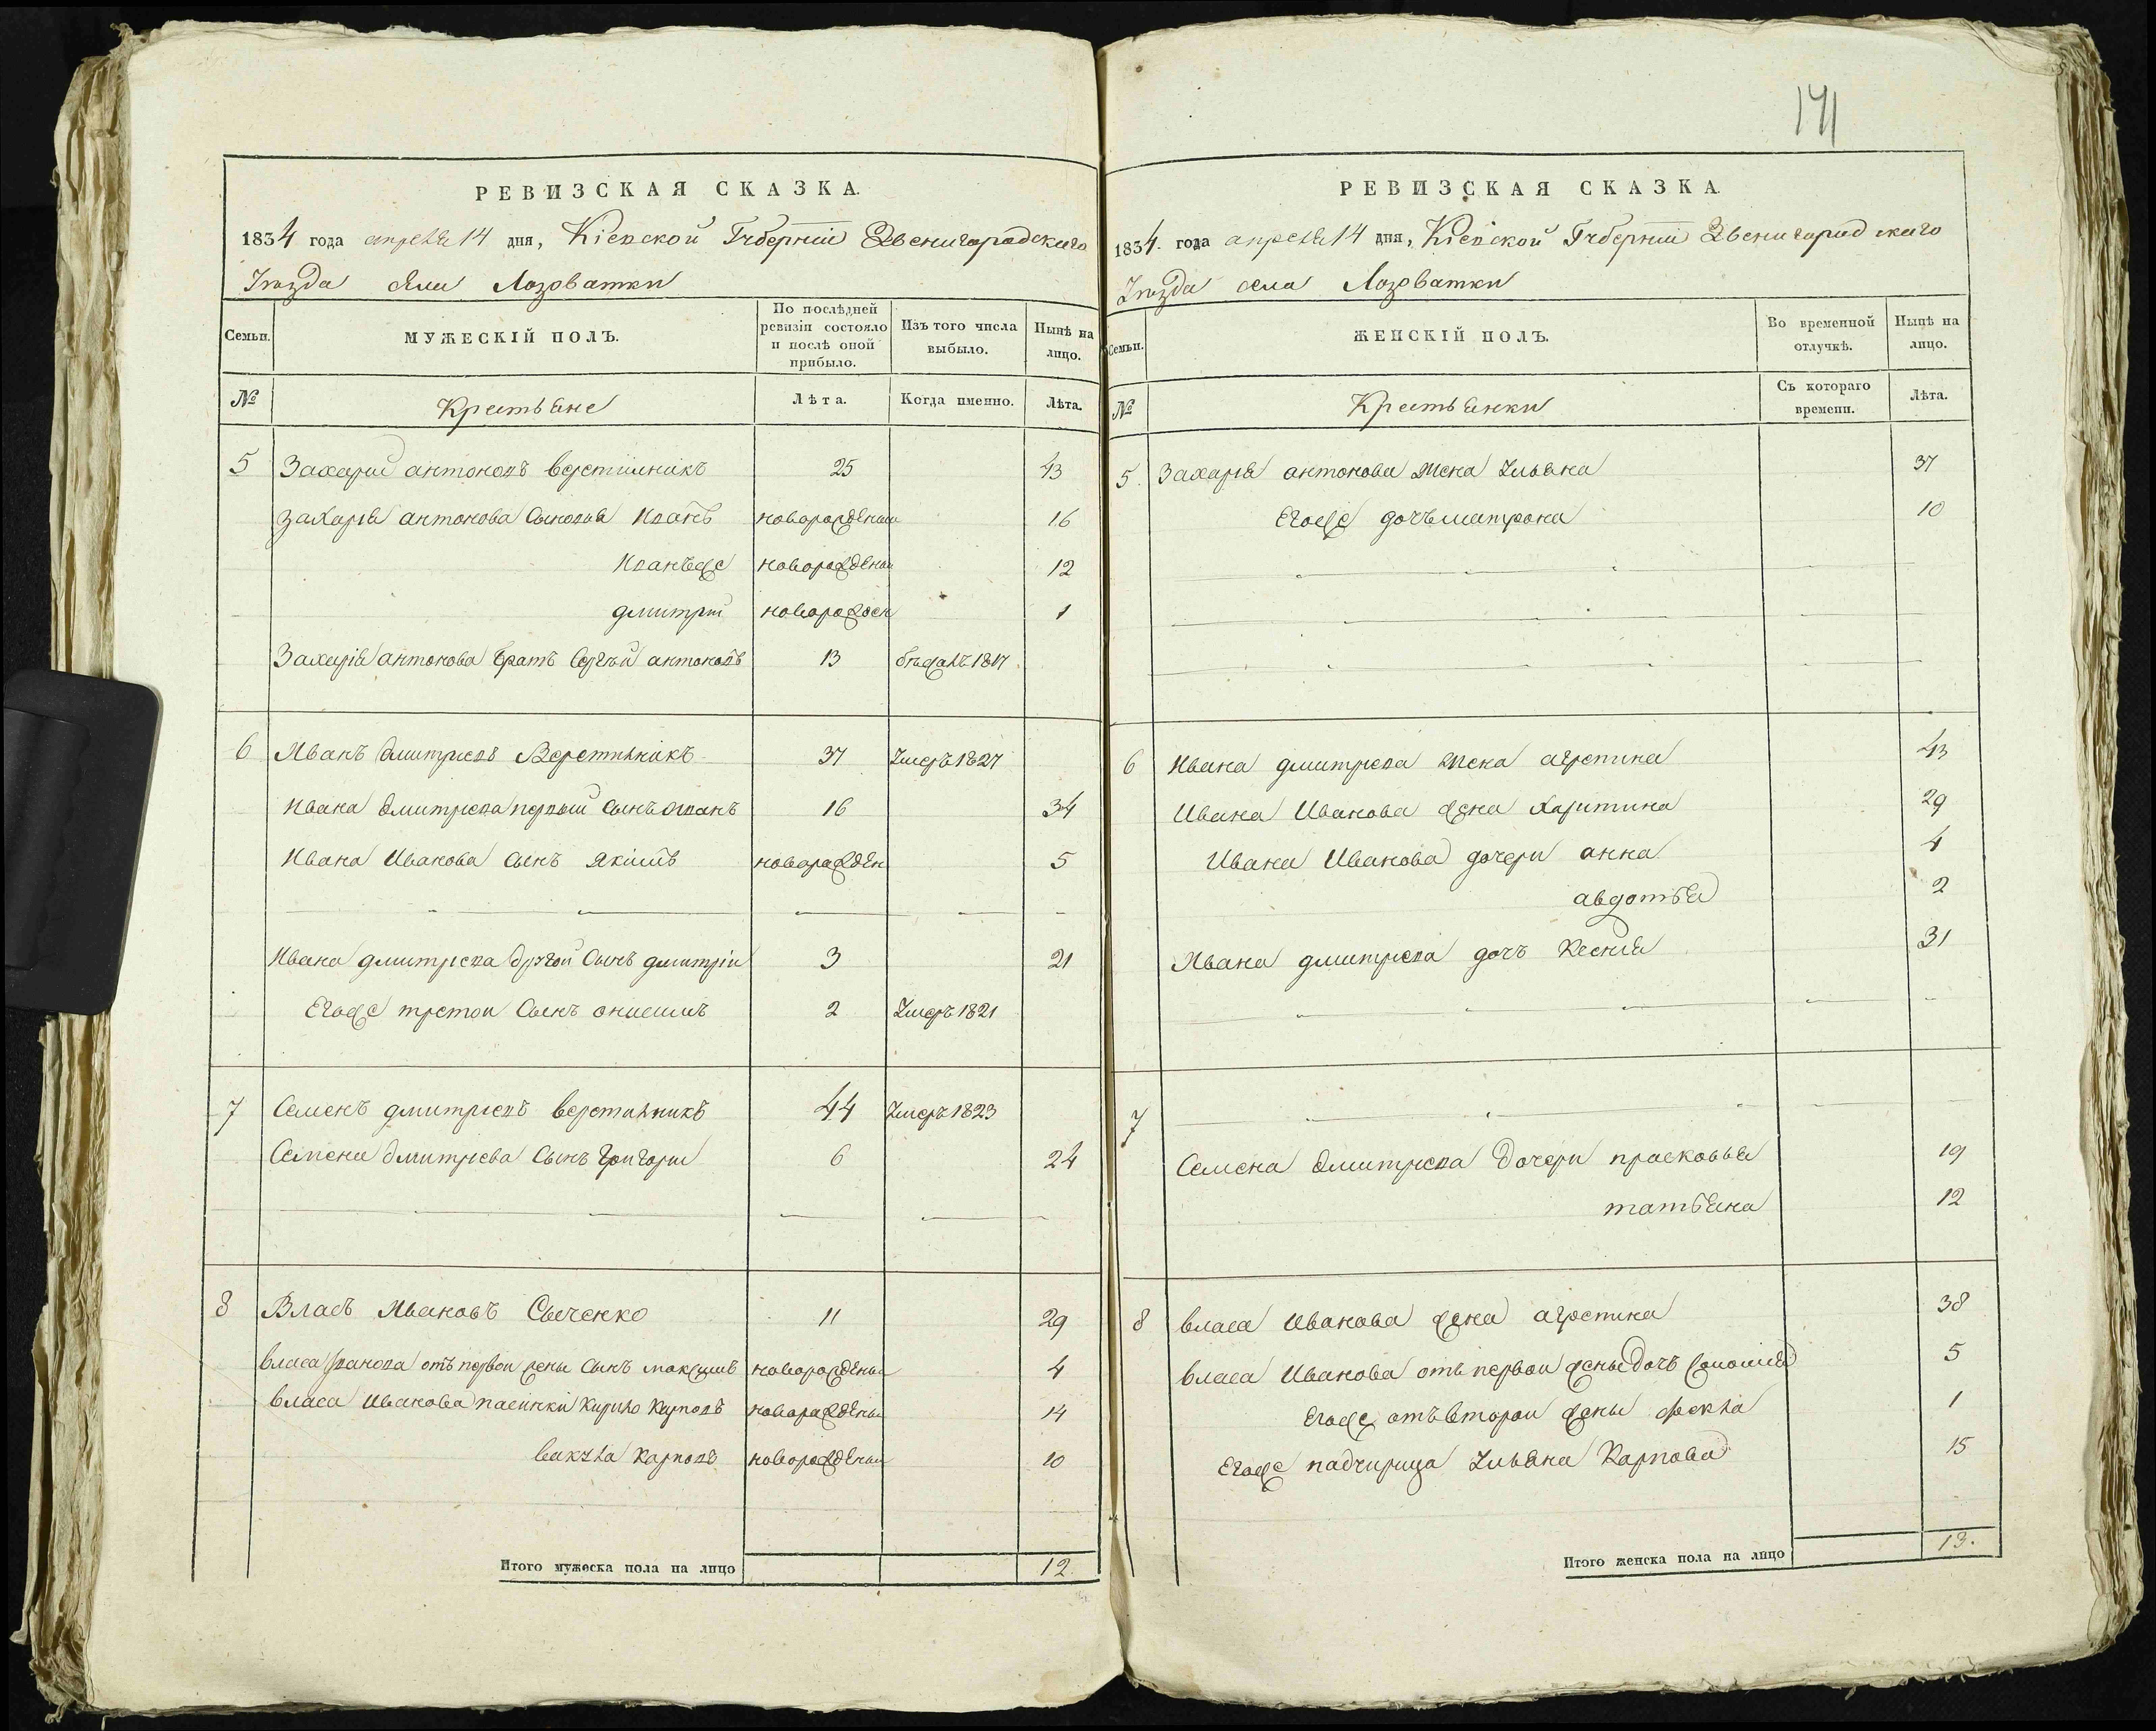 171
РЕВИЗСКАЯ СКАЗКА.
1834 года апреля 14 дня, Кіевской Губерніи Звенигородскаго
Уѣзда села Лозоватки
Семьи.
МУЖЕСКІЙ ПОЛЪ.
По послѣдней ревизіи состояло и послѣ оной прибыло.
Изъ того числа выбыло.
Нынѣ на лицо.
№
Крестьяне
Лѣта.
Когда именно.
Лѣта.
5 Захарий антоновъ веретилникъ 25 43
Захария антонова Сыновья Иванъ новорожденый 16
Иванъ же новорожденый 12
дмитрий новорожден 1
Захария антонова братъ Сергѣй антоновъ 13 бѣжалъ 1817
6 Иванъ дмитриевъ Веретилникъ 37 Умеръ 1827
Ивана дмитриева первый Сынъ Иванъ 16 34
Ивана Иванова Сынъ Якимъ новорожден 5
Ивана дмитриева другой Сынъ дмитрий 3 21
Его же третои Сынъ онисимъ 2 Умеръ 1821
7 Семенъ дмитриевъ веретилникъ 44 Умеръ 1823
Семена дмитриева Сынъ Григорий 6 24
8 Власъ Ивановъ Сыченко 11 29
власа Иванова отъ первои жены Сынъ максимъ новорожденый 4
власа Иванова пасинки Кирило Карповъ новорожденый 14
вакула Карповъ новорожденый 10
Итого мужеска пола на лицо 12
РЕВИЗСКАЯ СКАЗКА
1834. года апреля 14 дня, Кіевской Губерніи Звенигородскаго
Уѣзда села Лозоватки
Семьи.
ЖЕНСКІЙ ПОЛЪ.
Во временной отлучкѣ.
Нынѣ на лицо.
№
Крестьянки
Съ котораго времени.
Лѣта.
5. Захария антонова жена Ульяна 37
Его же дочь матрона 10
6 Ивана дмитриева жена агрепина 43
Ивана Иванова жена Харитина 29
Ивана Иванова дочери анна 4
авдотья 2
Ивана дмитриева дочь Ксения 31
7
Семена дмитриева дочери прасковья 19
татьяна 12
8 власа Иванова жена агрепина 38
власа Иванова отъ первои жены дочь 5
Его же отъ второи жены фекла 1
Его же падчирица Ульяна Карпова 15
Итого женска пола на лицо 13.